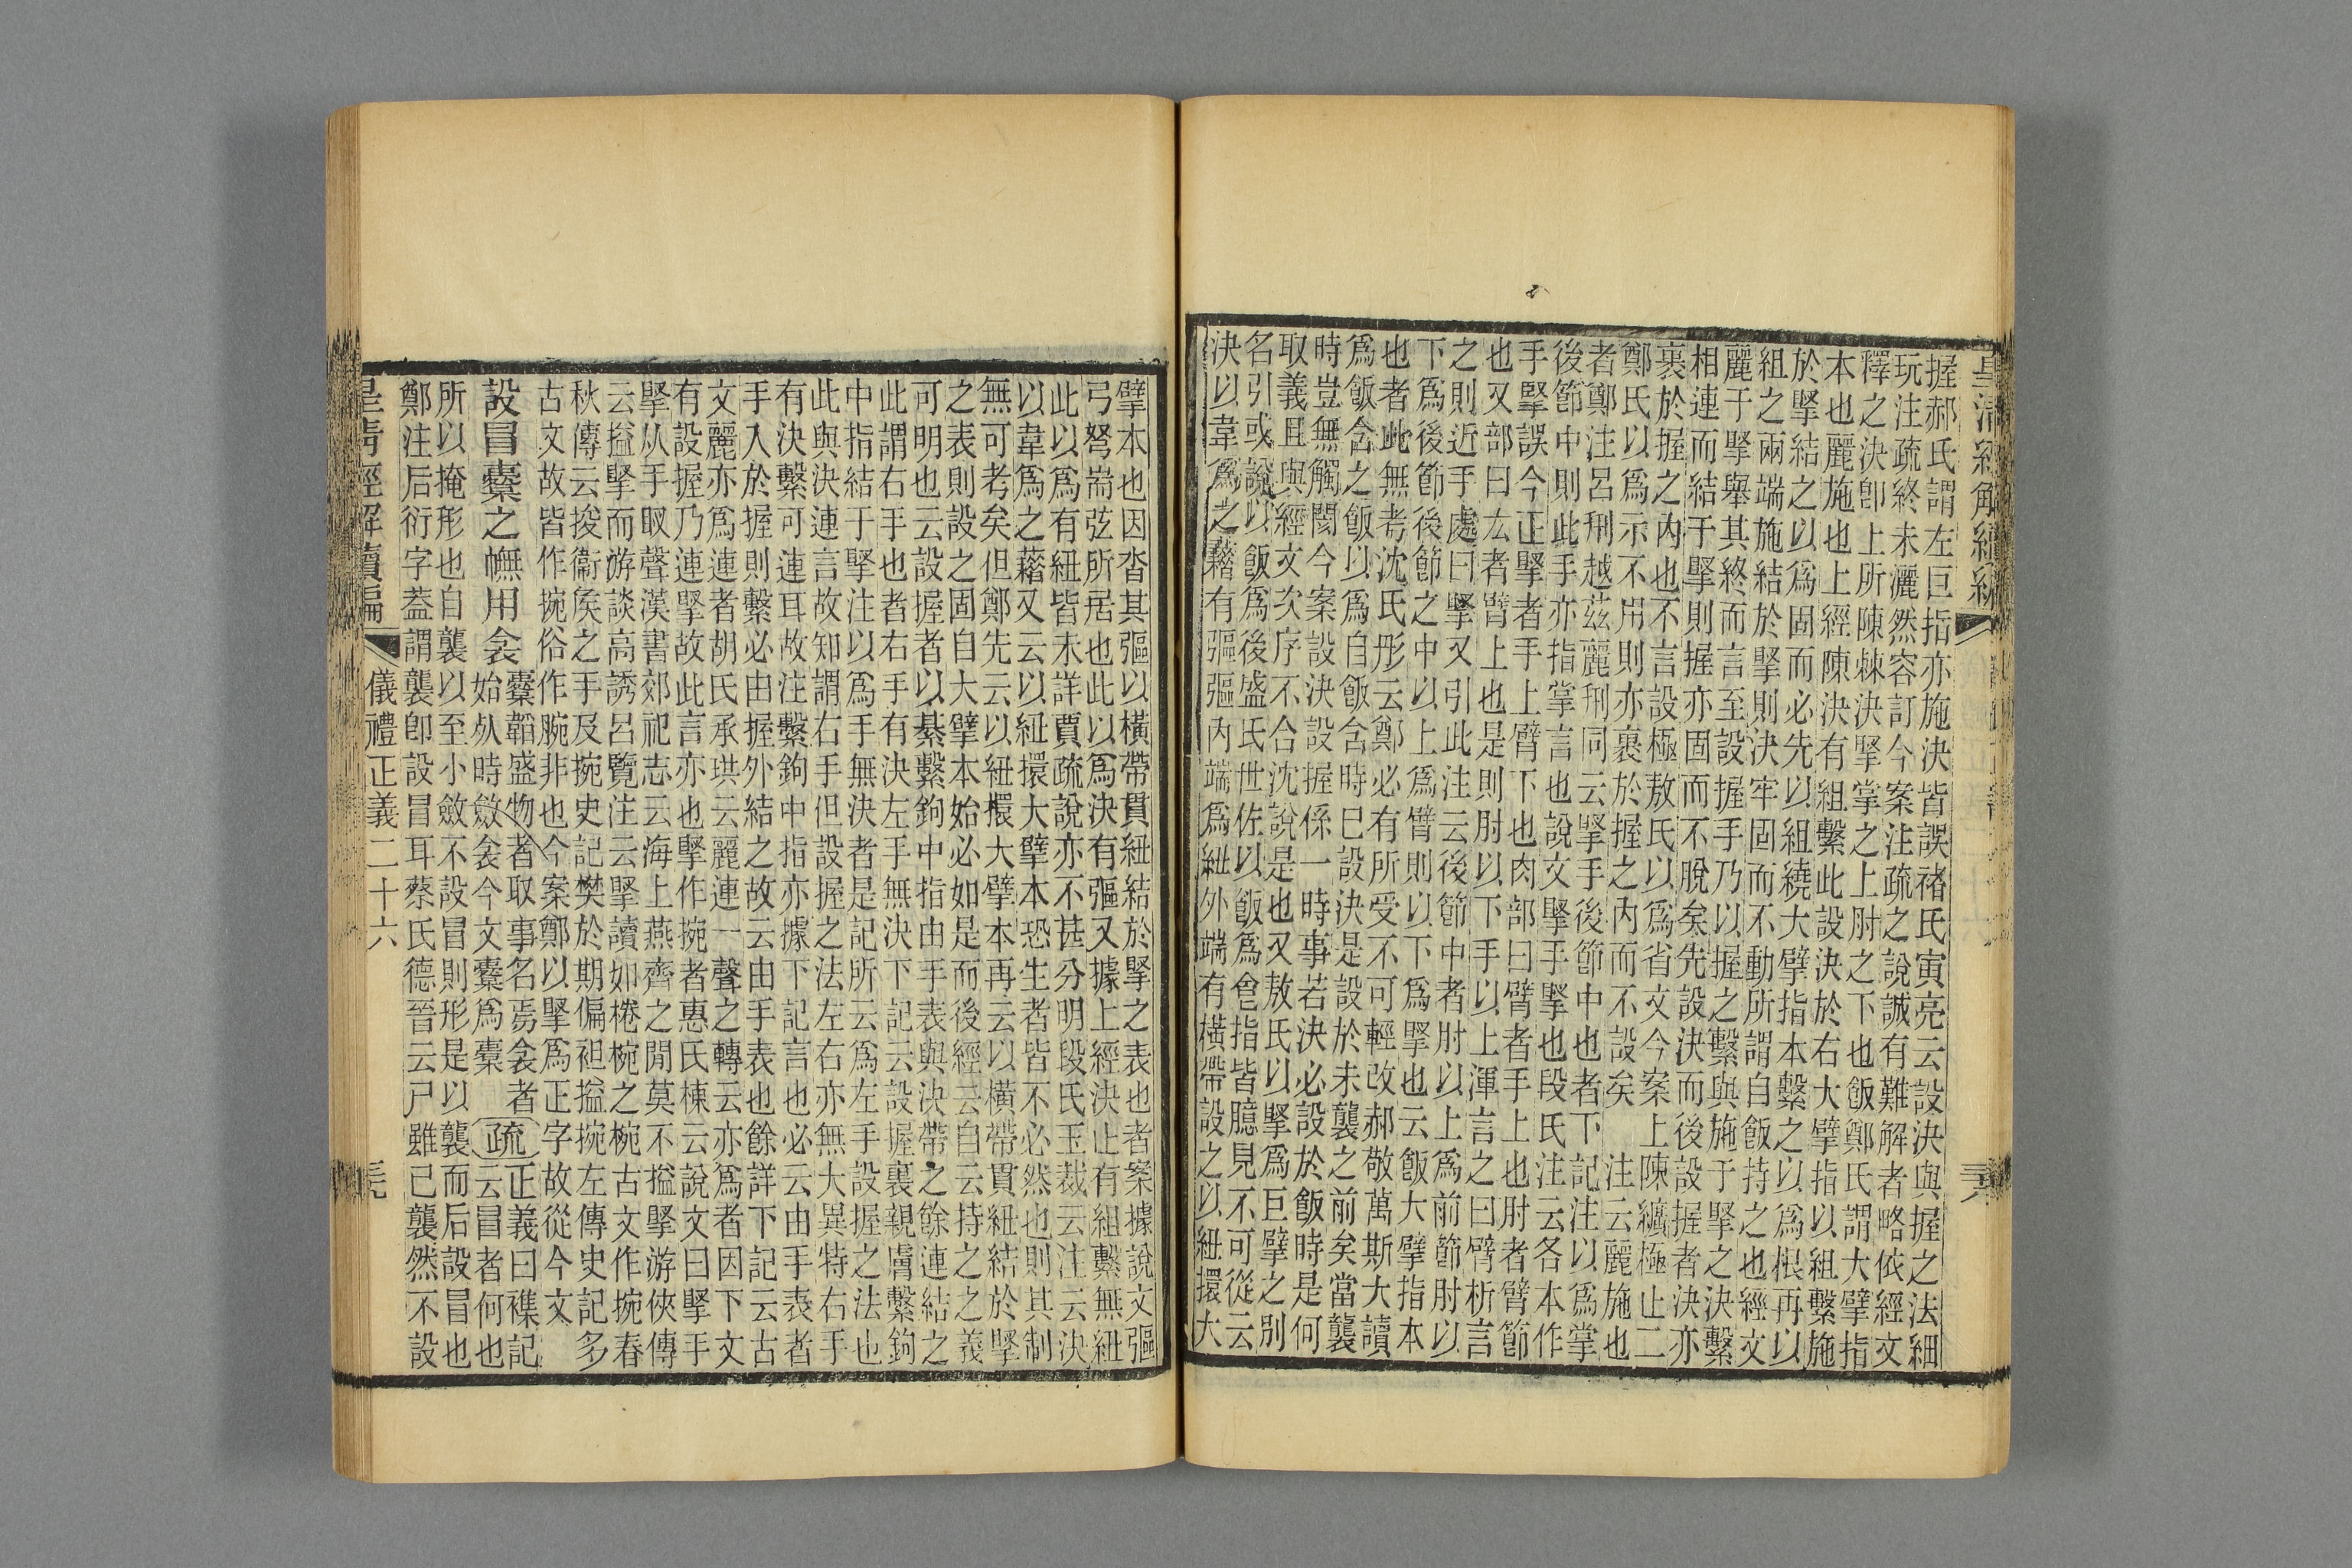 皇清經解續編
握郝氏謂左巨指亦施決皆誤褚氏寅亮云設決與握之法細
玩注疏終未灑然容訂今案注疏之說誠有難解者略依經文
釋之決卽上所陳棘決掔掌之上肘之下也飯鄭氏謂大擘指
本也麗施也上經陳決有組繫此設決於右大擘指以組繫施
於掔結之以爲固而必先以組繞大擘指本繫之以爲根再以
組之兩端施結於掔則決牢固而不動所謂自飯持之也經文
麗于掔舉其終而言至設握手乃以握之繫與施于掔之決繫
相連而結于掔則握亦固而不脫矣先設決而後設握者決亦
裹於握之內也不言設極敖氏以爲省文今案上陳纊極止二
鄭氏以爲示不用則亦裹於握之內而不設矣　注云麗施也
者鄭注呂刑越茲麗刑同云掔手後節中也者下記注以爲掌
後節中則此手亦指掌言也說文掔手掔也段氏注云各本作
手掔誤今正掔者手上臂下也肉部曰臂者手上也肘者臂節
也又部曰厷者臂上也是則肘以下手以上渾言之曰臂析言
之則近手處曰掔又引此注云後節中者肘以上爲前節肘以
下爲後節後節之中以上爲臂則以下爲掔也云飯大擘指本
也者此無考沈氏彤云鄭必有所受不可輕改郝敬萬斯大讀
爲飯含之飯以爲自飯含時巳設決是設於未襲之前矣當襲
時豈無觸閡今案設決設握係一時事若決必設於飯時是何
取義且與經文次序不合沈說是也又敖氏以掔爲巨擘之別
名引或說以飯爲後盛氏世佐以飯爲食指皆臆見不可從云
決以韋爲之藉有彄彄內端爲紐外端有橫帶設之以紐擐大
擘本也因沓其彄以橫帶貫紐結於掔之表也者案據說文彄
弓弩耑弦所居也此以爲決有彄又據上經決止有組繫無紐
此以爲有紐皆未詳賈疏說亦不甚分明段氏玉裁云注云決
以韋爲之藉又云以紐擐大擘本恐生者皆不必然也則其制
無可考矣但鄭先云以紐擐大擘本再云以橫帶貫紐結於掔
之表則設之固自大擘本始必如是而後經云自云持之之義
可明也云設握者以綦繫鉤中指由手表與決帶之餘連結之
此謂右手也者右手有決左手無決下記云設握裏親膚繫鉤
中指結于掔注以爲手無決者是記所云爲左手設握之法也
此與決連言故知謂右手但設握之法左右亦無大異特右手
有決繫可連耳故注繫鉤中指亦據下記言也必云由手表者
手入於握則繫必由握外結之故云由手表也餘詳下記云古
文麗亦爲連者胡氏承珙云麗連一聲之轉云亦爲者因下文
有設握乃連掔故此言亦也掔作捥者惠氏棟云說文曰掔手
掔从手臤聲漢書郊祀志云海上燕齊之閒莫不搤掔游俠傳
云搤掔而游談高誘呂覽注云掔讀如棬椀之椀古文作捥春
秋傳云捘衞矦之手及捥史記樊於期偏袒搤捥左傳史記多
古文故皆作捥俗作腕非也今案鄭以掔爲正字故從今文
設冒櫜之幠用衾
櫜韜盛物者取事名焉衾者
始𣦸時斂衾今文櫜爲橐
疏正義曰襍記
云冒者何也
所以掩形也自襲以至小斂不設冒則形是以襲而后設冒也
鄭注后衍字葢謂襲卽設冒耳蔡氏德晉云尸雖已襲然不設
皇清經解續編　儀禮正義二十六　三九